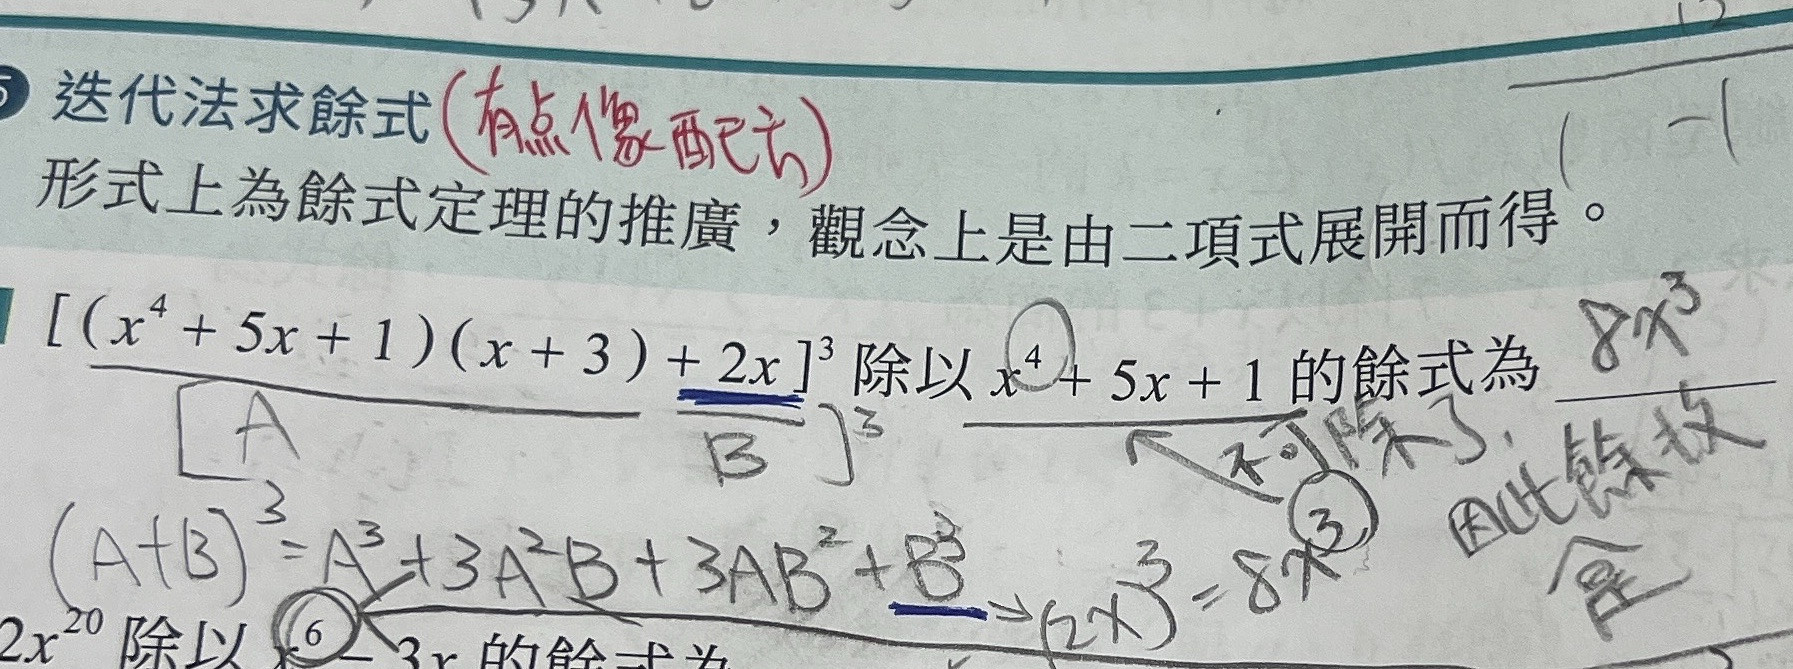 迭代法求餘式(有点像配方)
形式上為餘式定理的推廣,觀念上是由二項式展開而得。
[(x⁴+5x+1)(x+3)+2x]³除以x⁴+5x+1的餘式為 8x³
[A B]³ 不可除了,
因此餘
(A+B)³=A³+3A²B+3AB²+B³→(2x)³=8x³
2x²⁰除以x⁶-3x的餘式為